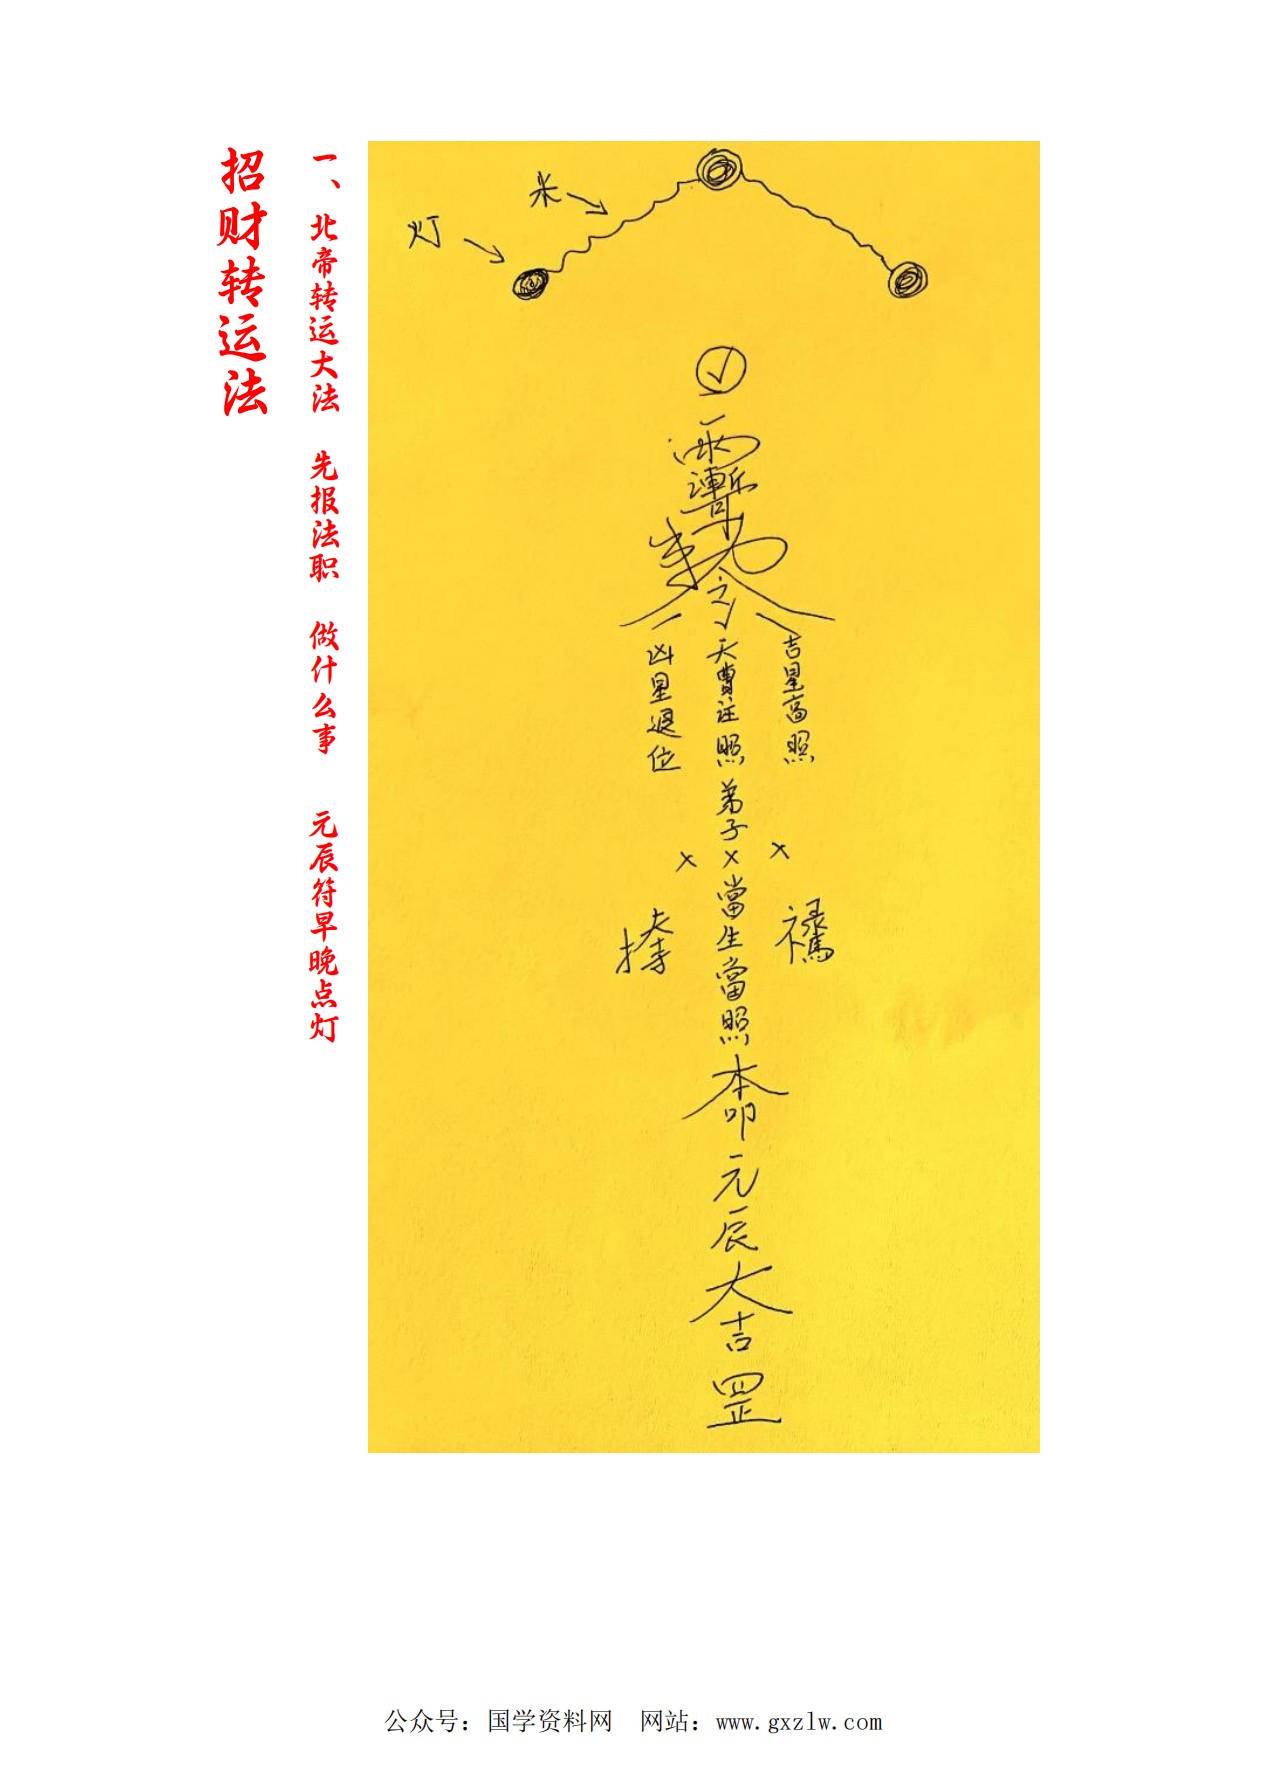 招财转运法
一、北帝转运大法 先报法职 做什么事 元辰符早晚点灯
米
灯
吉星高照
天曹註照弟子×××當生當照本命元辰大吉罡
凶星退位
公众号：国学资料网 网站：www.gxzlw.com